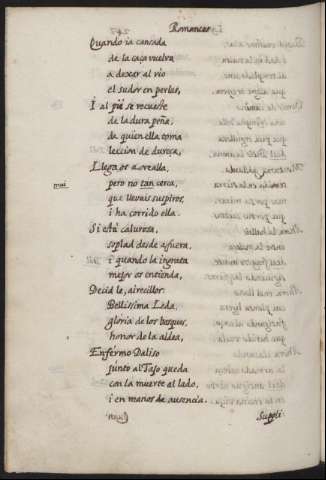 Romances.
Quando ia cansada
de la caça vuelva
a dexar al rio
el sudor en perlas,
I al pie se recueste
de la dura peña,
de quien ella toma
leccion de dureça,
Llega os a orealla,
mui pero no tan cerca,
que llevais suspiros,
i ha corrido ella.
Si está calurosa,
soplad desde afuera,
i quando la ingrata
mejor os entienda,
Decid le, airecillos:
Bellissima Leda,
gloria de los bosques,
honor de la aldea,
Enfermo Daliso
junto al Tajo queda
con la muerte al lado,
i en manos de ausencia.
Suppli